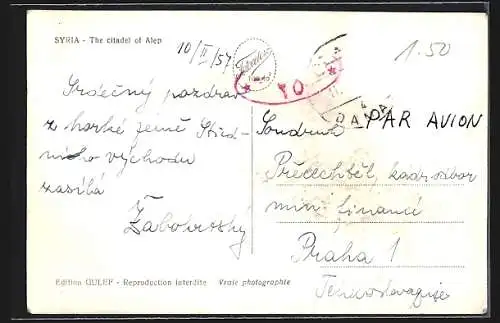 SYRIA - The citadel of Alep
10/II/57
1.50
٢٥
PAR AVION
Srdečný pozdrav
z horké země Střed-
ního východu
zasílá
Soudruh
Přecechtěl, kádr. odbor
min. financí
Praha 1
Edition GULEF - Reproduction interdite Vraie photographie